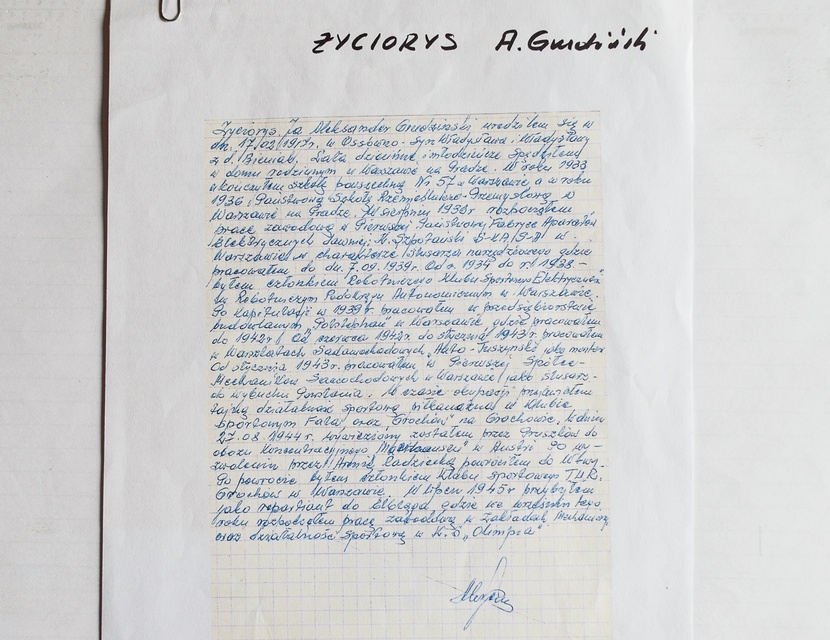 ŻYCIORYS A. Grudziński
Życiorys. Ja Aleksander Grudziński urodziłem się w
dn. 17/02/1917r. w syn Władysława i Władysławy
z d. Bieniak. Lata dziecinne i młodzieńcze spędziłem
w domu rodzinnym w Warszawie na Pradze. W roku 1933
ukończyłem szkołę powszechną Nr 57 w Warszawie, a w roku
1936 Państwową Szkołę Rzemieślniczo-Przemysłową w
Warszawie na Pradze. W sierpniu 193 r rozpocząłem
pracę zawodową w Pierwszej Państwowej Fabryce Aparatów
Elektrycznych dawniej K. Szpotański S-KA w
Warszawie w charakterze ślusarza narzędziowego gdzie
pracowałem do dn. 7.09.1939r. Od r. 1934 do r. 1938 -
byłem członkiem Robotniczego Klubu Sportowego Elektryczność
w Robotniczym Podokręgu Autonomicznym w Warszawie.
Po kapitulacji w 1939r pracowałem w przedsiębiorstwie
budowlanym w Warszawie gdzie pracowałem
do 1942r. Od czerwca 1942r. do stycznia 1943r pracowałem
w Warsztatach Samochodowych „Auto-Tuszyński jako monter
Od stycznia 1943r. pracowałem w Pierwszej Spółce
Mechaników Samochodowych w Warszawie jako ślusarz-
do wybuchu Powstania. W czasie okupacji przejawiałem
tajną działalność sportową piłkarską w Klubie
Sportowym Fala oraz „Grochów" na Grochowie. W dniu
27.08.1944r. wywieziony zostałem przez Pruszków do
obozu koncentracyjnego „Mauthausen" w Austrii. Po wy-
zwoleniu przez Armię Radziecką powróciłem do W-wy.
Po powrocie byłem członkiem Klubu Sportowego T.U.R.
Grochów w Warszawie. W lipcu 1945r przybyłem
jako repatriant do Elbląga gdzie we wrześniu tego
roku rozpocząłem pracę zawodową w Zakładach Mechanicznych
oraz działalność sportową w K.S „Olimpia"